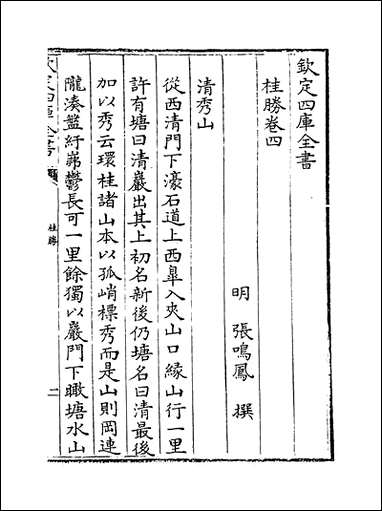 欽定四庫全書
桂勝卷四
明 張鳴鳳 撰
清秀山
從西清門下濠石道上西臯入夾山口緣山行一里
許有塘曰清巖出其上初名新後仍塘名曰清最後
加以秀云環桂諸山本以孤峭標秀而是山則岡連
隴湊盤紆岪鬱長可一里餘獨以巖門下瞰塘水山
欽定四庫全書
桂勝
一